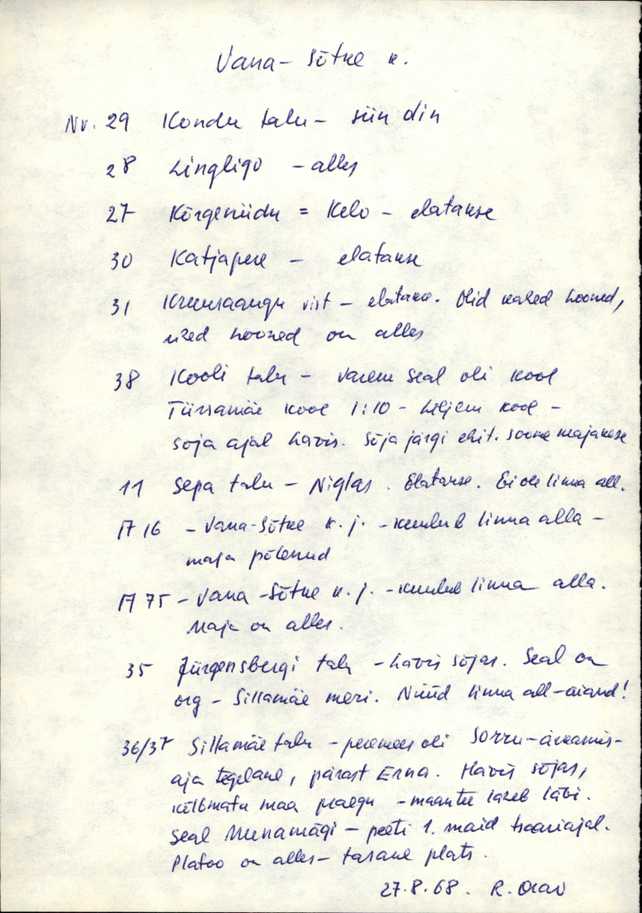 Vana-Sõtke k.
Nr. 29 Kondu talu - siin olin
28 Lingligo - alles
27 Kõrgeniidu = Kelo - elatakse
30 Katjapere - elatakse
31 vist - elatakse. Olid kased hooned,
uued hooned on alles
38 Kooli talu - varem seal oli kool
Türsamäe kool 1:10 - hiljem kool -
sõja ajal hävis. Sõja järgi ehit. soome majakese
11 Sepa talu - Niglas. Elatakse. Ei ole linna all.
A 16 - Vana-Sõtke k. j. - kuulub linna alla -
maja põlenud
A 75 - Vana-Sõtke k. j. - kuulub linna alla.
Maja on alles.
35 Jürgensbergi talu - hävis sõjas. Seal on
org - Sillamäe meri. Nüüd linna all - aiand!
36/37 Sillamäe talu - peremees oli Sorru - ärkamis-
aja tegelane, pärast Erna. Hävis sõjas,
kõlbmatu maa praegu - maantee läheb läbi.
Seal Munamägi - peeti 1. maid tsaariajal.
Platoo on alles - tasane plats.
27.8.68. R. Orav